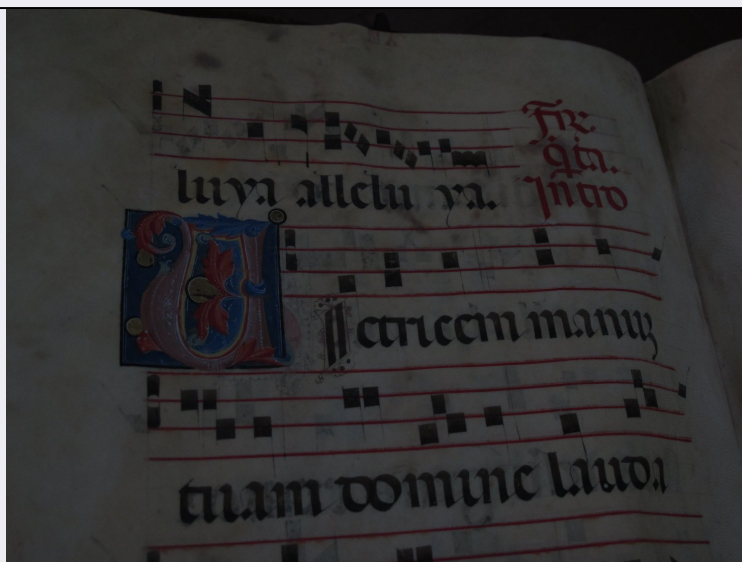 luya allelu ya.
Fer.
q̃ta.
Intro
VIctricem manuʒ
tuam domine lauda